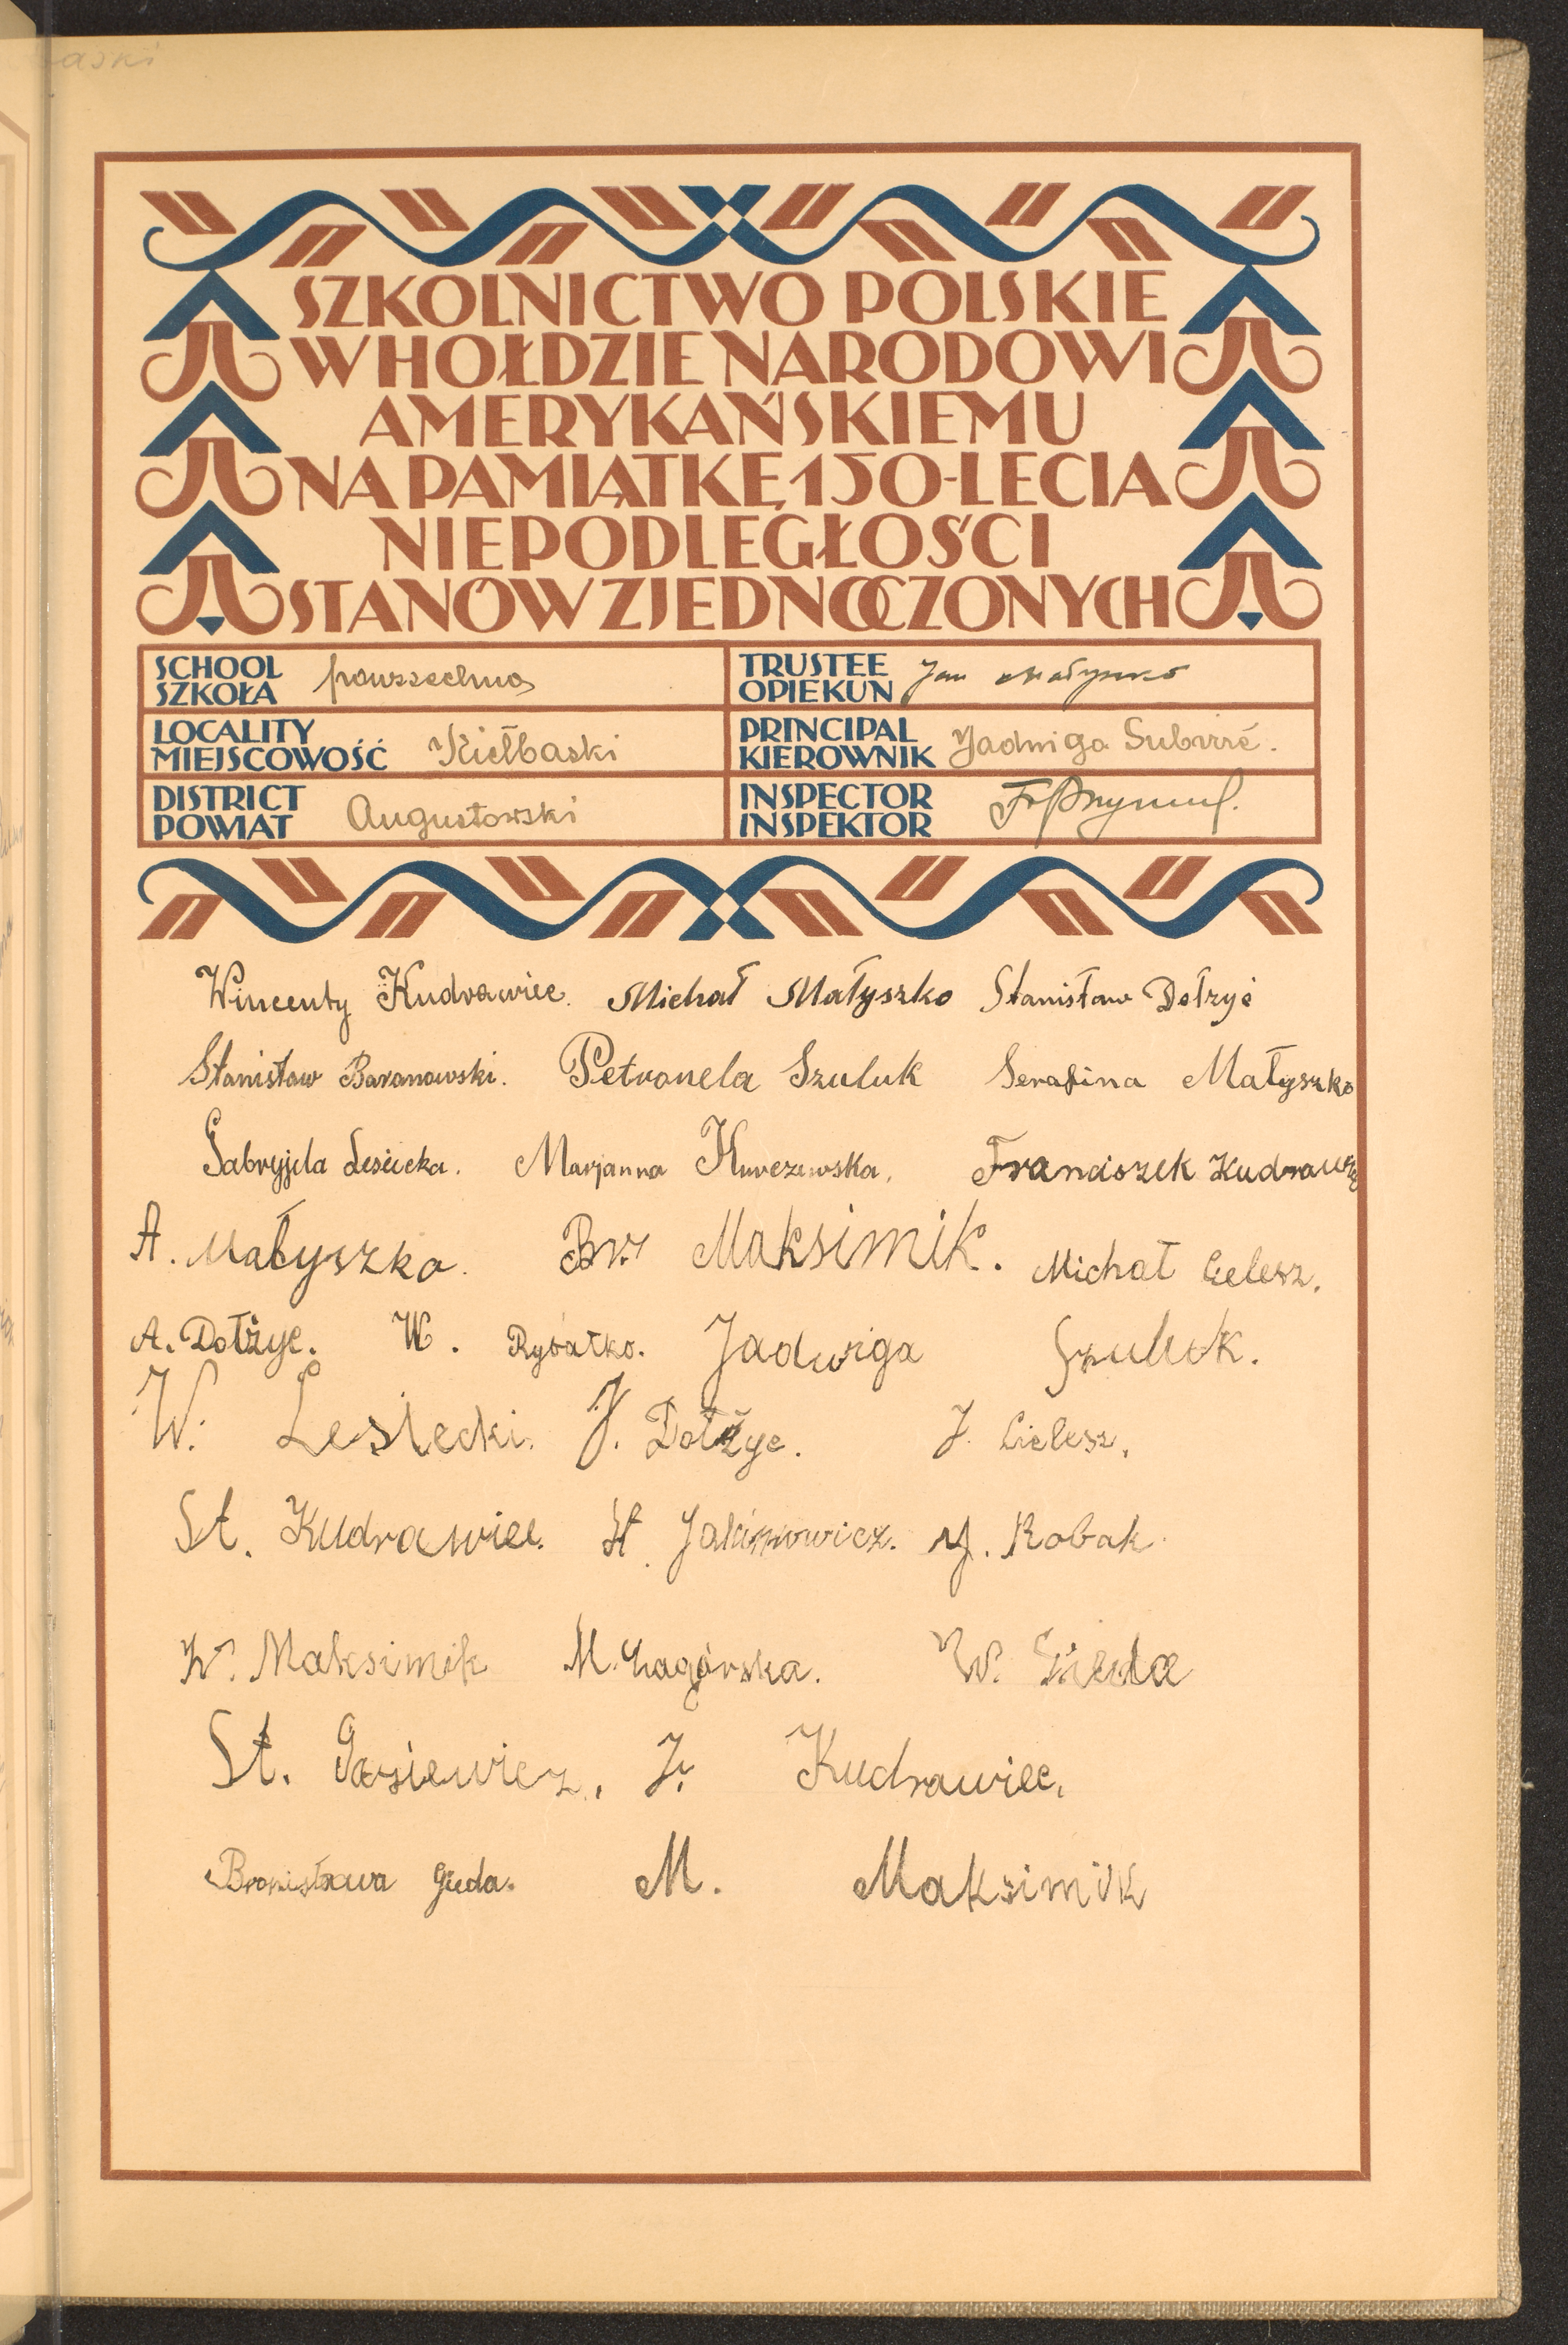 aski
SZKOLNICTWO POLSKIE
W HOŁDZIE NARODOWI
AMERYKAŃSKIEMU
NA PAMIĄTKĘ 150-LECIA
NIEPODLEGŁOŚCI
STANÓW ZJEDNOCZONYCH
SCHOOL
SZKOŁA powszechna
TRUSTEE
OPIEKUN Jan Małyszko
LOCALITY
MIEJSCOWOŚĆ Kiełbaski
PRINCIPAL
KIEROWNIK Jadwiga
DISTRICT
POWIAT Augustowski
INSPECTOR
INSPEKTOR
Wincenty Kudrawiec. Michał Małyszko Stanisław Dołżyc
Stanisław Baranowski. Petronela Szuluk Serafina Małyszko
Gabryjela Lesiecka. Marjanna Kurczewska. Franciszek Kudrawiec
A. Małyszko. Br. Maksimik. Michał Cielesz.
A. Dołżyc. W. Rybałko. Jadwiga Szuluk.
W. Lesiecki. J. Dołżyc. J. Cielesz.
St. Kudrawiec. St. Jakimowicz. J. Robak.
W. Maksimik M. Zagórska. W.
St. Gasiewicz. J. Kudrawiec.
Bronisława Gieda. M. Maksimik